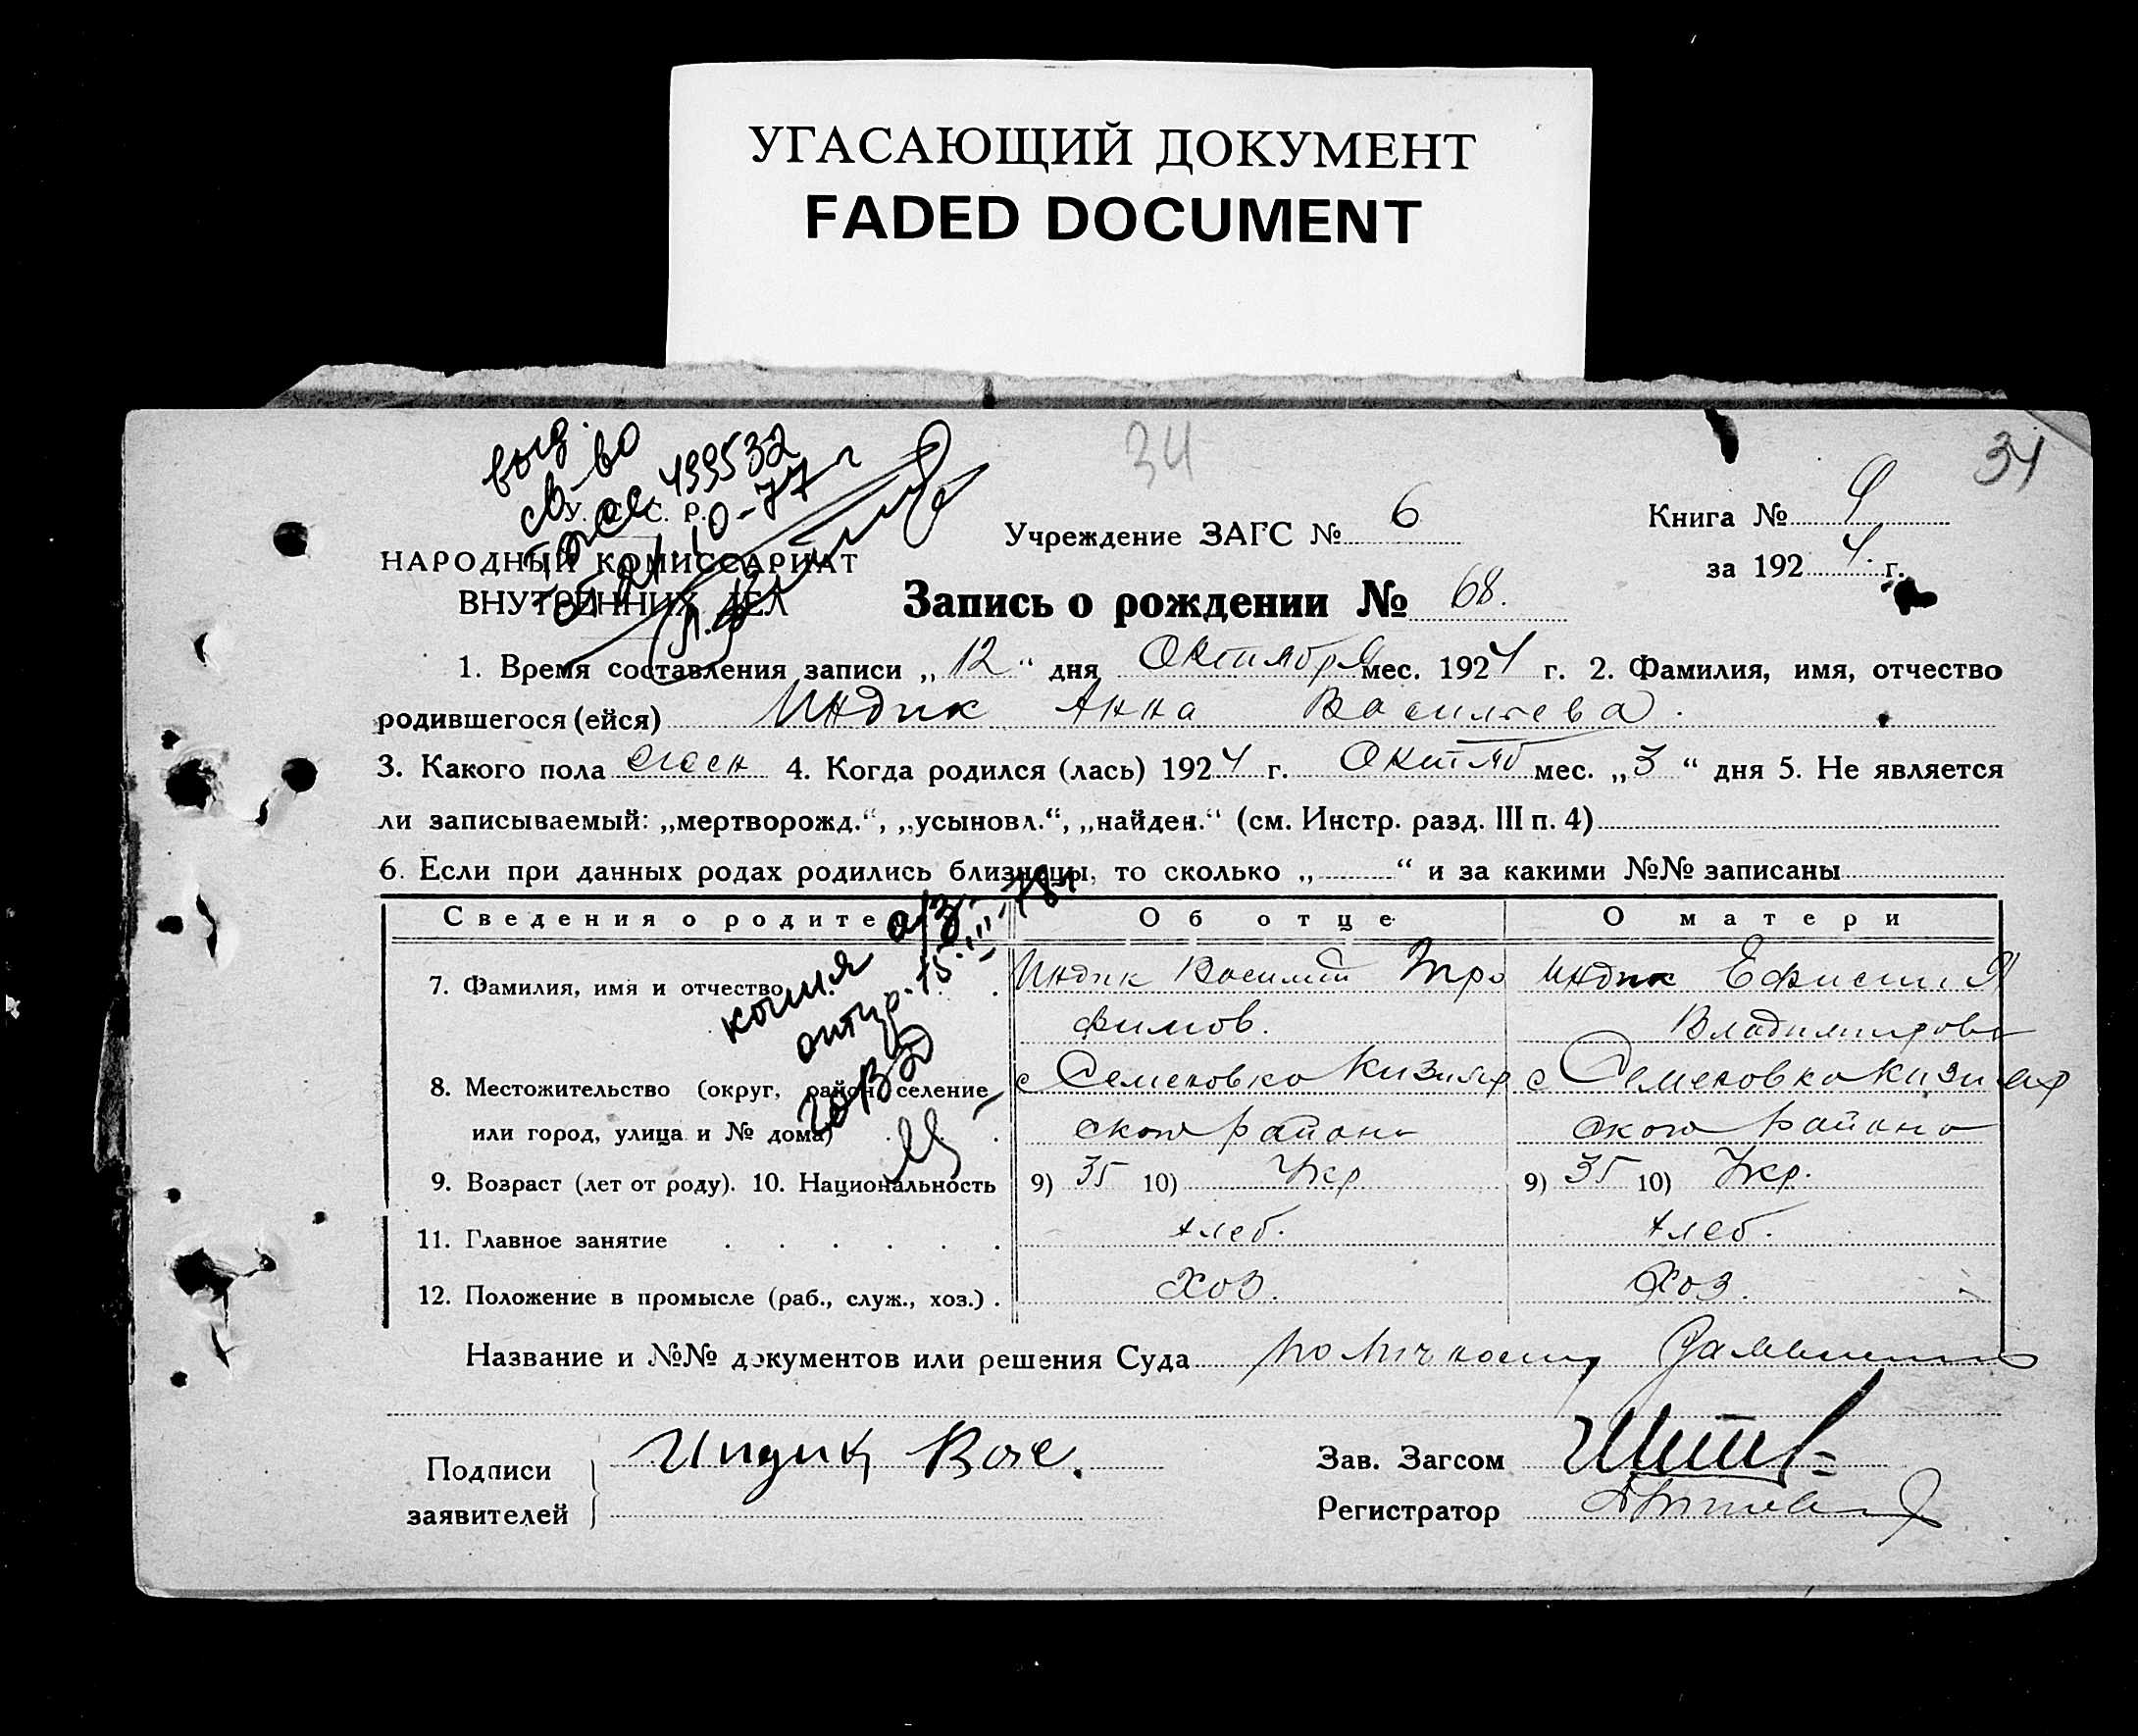 УГАСАЮЩИЙ ДОКУМЕНТ
FADED DOCUMENT
34
34
выд.
св-во
499532
21-10-77 г
У. С. С. Р.
НАРОДНЫЙ КОМИССАРИАТ
ВНУТРЕННИХ ДЕЛ
Учреждение ЗАГС № 6
Книга №
за 1924 г.
Запись о рождении № 68.
1. Время составления записи „12“ дня Октября мес. 1924 г. 2. Фамилия, имя, отчество
родившегося (ейся) Индик Анна Васильева.
3. Какого пола жен 4. Когда родился (лась) 1924 г. Октяб мес. „3“ дня 5. Не является
ли записываемый: „мертворожд.“, „усыновл.“, „найден.“ (см. Инстр. разд. III п. 4)
6. Если при данных родах родились близнецы, то сколько „ “ и за какими №№ записаны
Сведения о родите Об отце О матери
копия а/з
15.III-78г
7. Фамилия, имя и отчество Индик Василий Тро Индик Ефисия
фимов. Владимирова
8. Местожительство (округ, район, селение с Семеновка Кизияр с Семеновка Кизияр
или город, улица и № дома) ского района ского района
9. Возраст (лет от роду). 10. Национальность 9) 35 10) Укр. 9) 35 10) Укр.
11. Главное занятие хлеб. хлеб.
12. Положение в промысле (раб., служ., хоз.) Хоз. Хоз.
Название и №№ документов или решения Суда по личному
Подписи заявителей Индик Вас.
Зав. Загсом
Регистратор